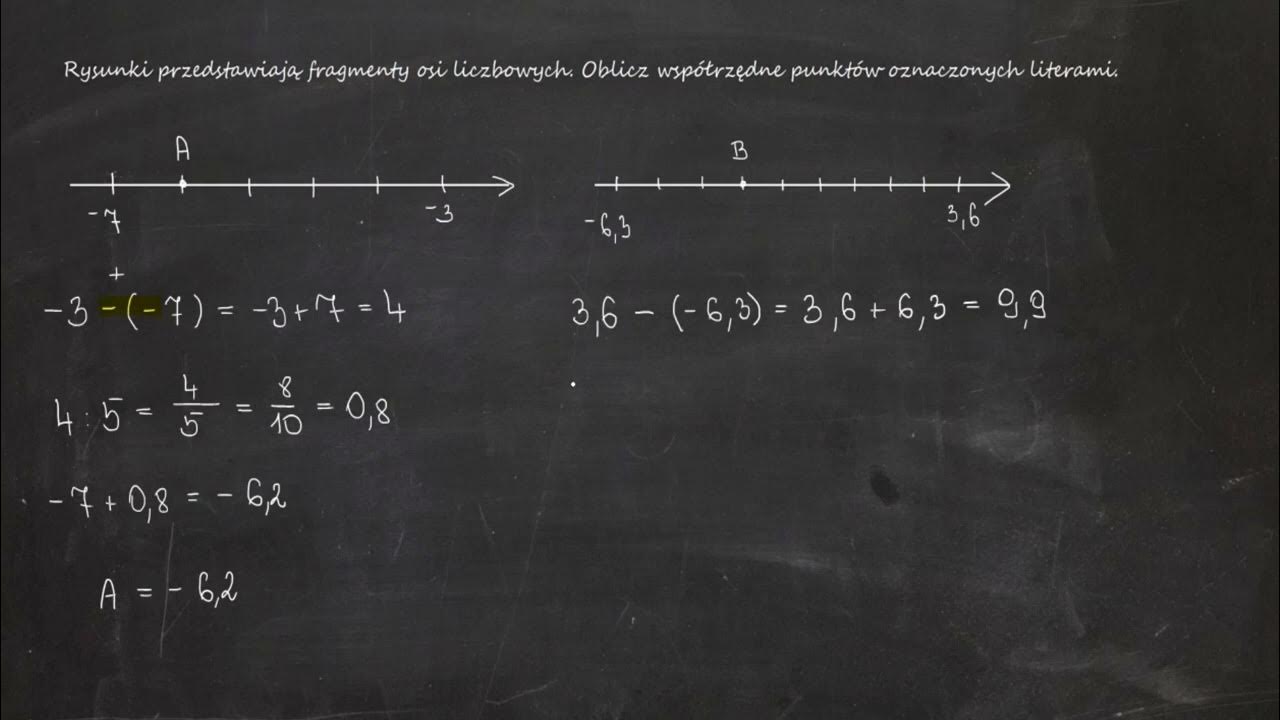 Rysunki przedstawiają fragmenty osi liczbowych. Oblicz współrzędne punktów oznaczonych literami.
A
-7 -3
B
-6,3 3,6
+
-3 -(-7) = -3+7 = 4
4 : 5 = 4/5 = 8/10 = 0,8
-7 + 0,8 = - 6,2
A = - 6,2
3,6 - (-6,3) = 3,6 + 6,3 = 9,9